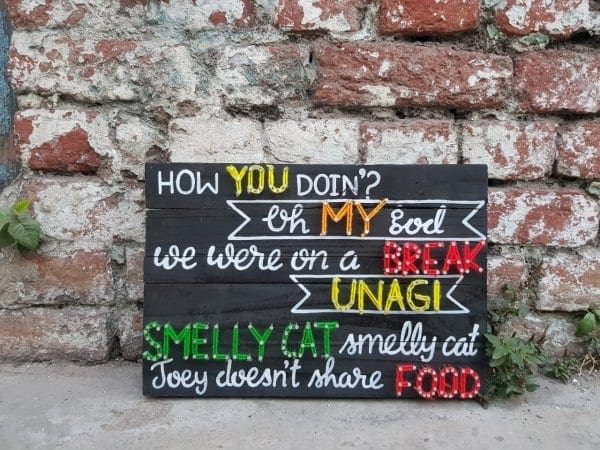 HOW YOU DOIN'?
Oh MY God
we were on a BREAK
UNAGI
SMELLY CAT smelly cat
Joey doesn't share FOOD